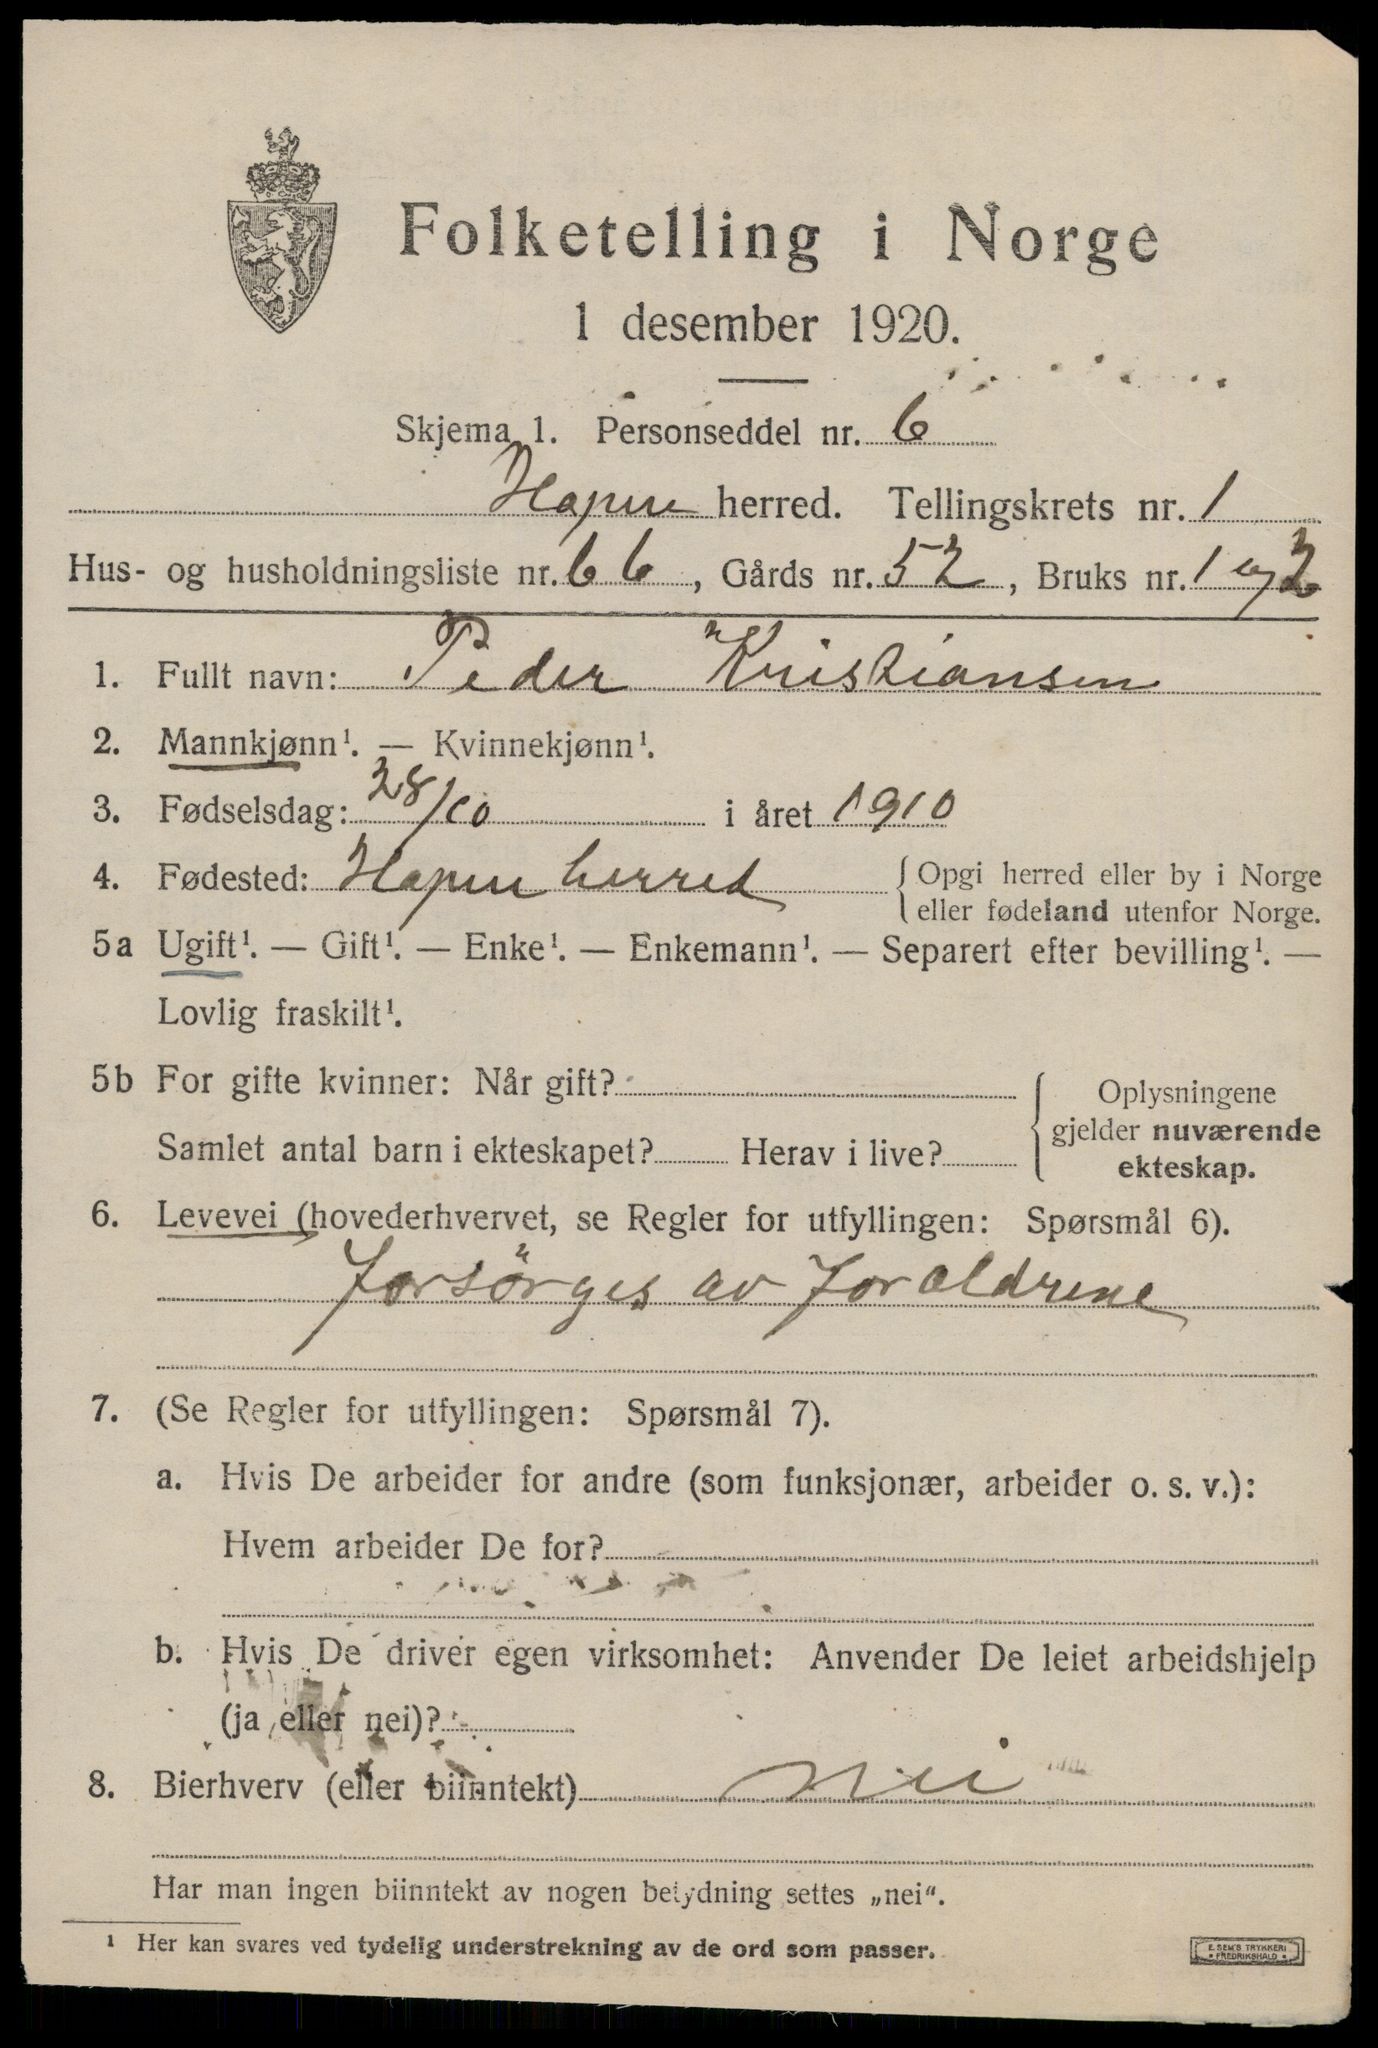 Folketelling i Norge
1 desember 1920.
Skjema 1. Personseddel nr. 6
herred. Tellingskrets nr. 1
Hus- og husholdningsliste nr. 66, Gårds nr. 52, Bruks nr. 1 og 2
1. Fullt navn: Peder Kristiansen
2. Mannkjønn¹. — Kvinnekjønn¹.
3. Fødselsdag: 28/10 i året 1910
4. Fødested: herred { Opgi herred eller by i Norge
eller fødeland utenfor Norge.
5a Ugift¹. — Gift¹. — Enke¹. — Enkemann¹. — Separert efter bevilling¹. —
Lovlig fraskilt¹.
5b For gifte kvinner: Når gift?
Samlet antal barn i ekteskapet? Herav i live?
Oplysningene
gjelder nuværende
ekteskap.
6. Levevei (hovederhvervet, se Regler for utfyllingen: Spørsmål 6).
Forsörges av Foraldrene
7. (Se Regler for utfyllingen: Spørsmål 7).
a. Hvis De arbeider for andre (som funksjonær, arbeider o. s. v.):
Hvem arbeider De for?
b. Hvis De driver egen virksomhet: Anvender De leiet arbeidshjelp
(ja eller nei)?
8. Bierhverv (eller biinntekt) nei
Har man ingen biinntekt av nogen betydning settes „nei“.
¹ Her kan svares ved tydelig understrekning av de ord som passer.
E. SEM'S TRYKKERI
FREDRIKSHALD